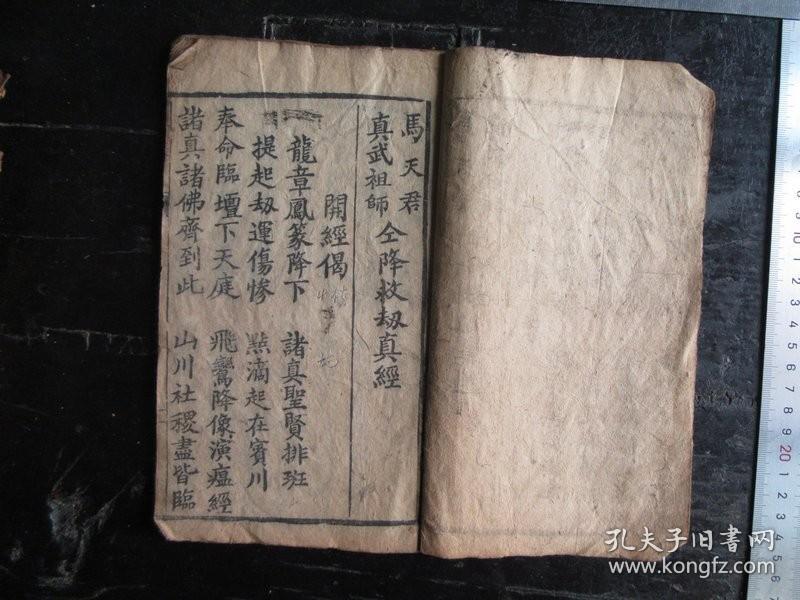 馬天君
真武祖師
仝降救劫真經
開經偈
龍章鳳篆降下 諸真聖賢排班
提起劫運傷慘 點滴起在賓川
奉命臨壇下天庭 飛鸞降像演瘟經
諸真諸佛齊到此 山川社稷盡皆臨
孔夫子旧書网
www.kongfz.com